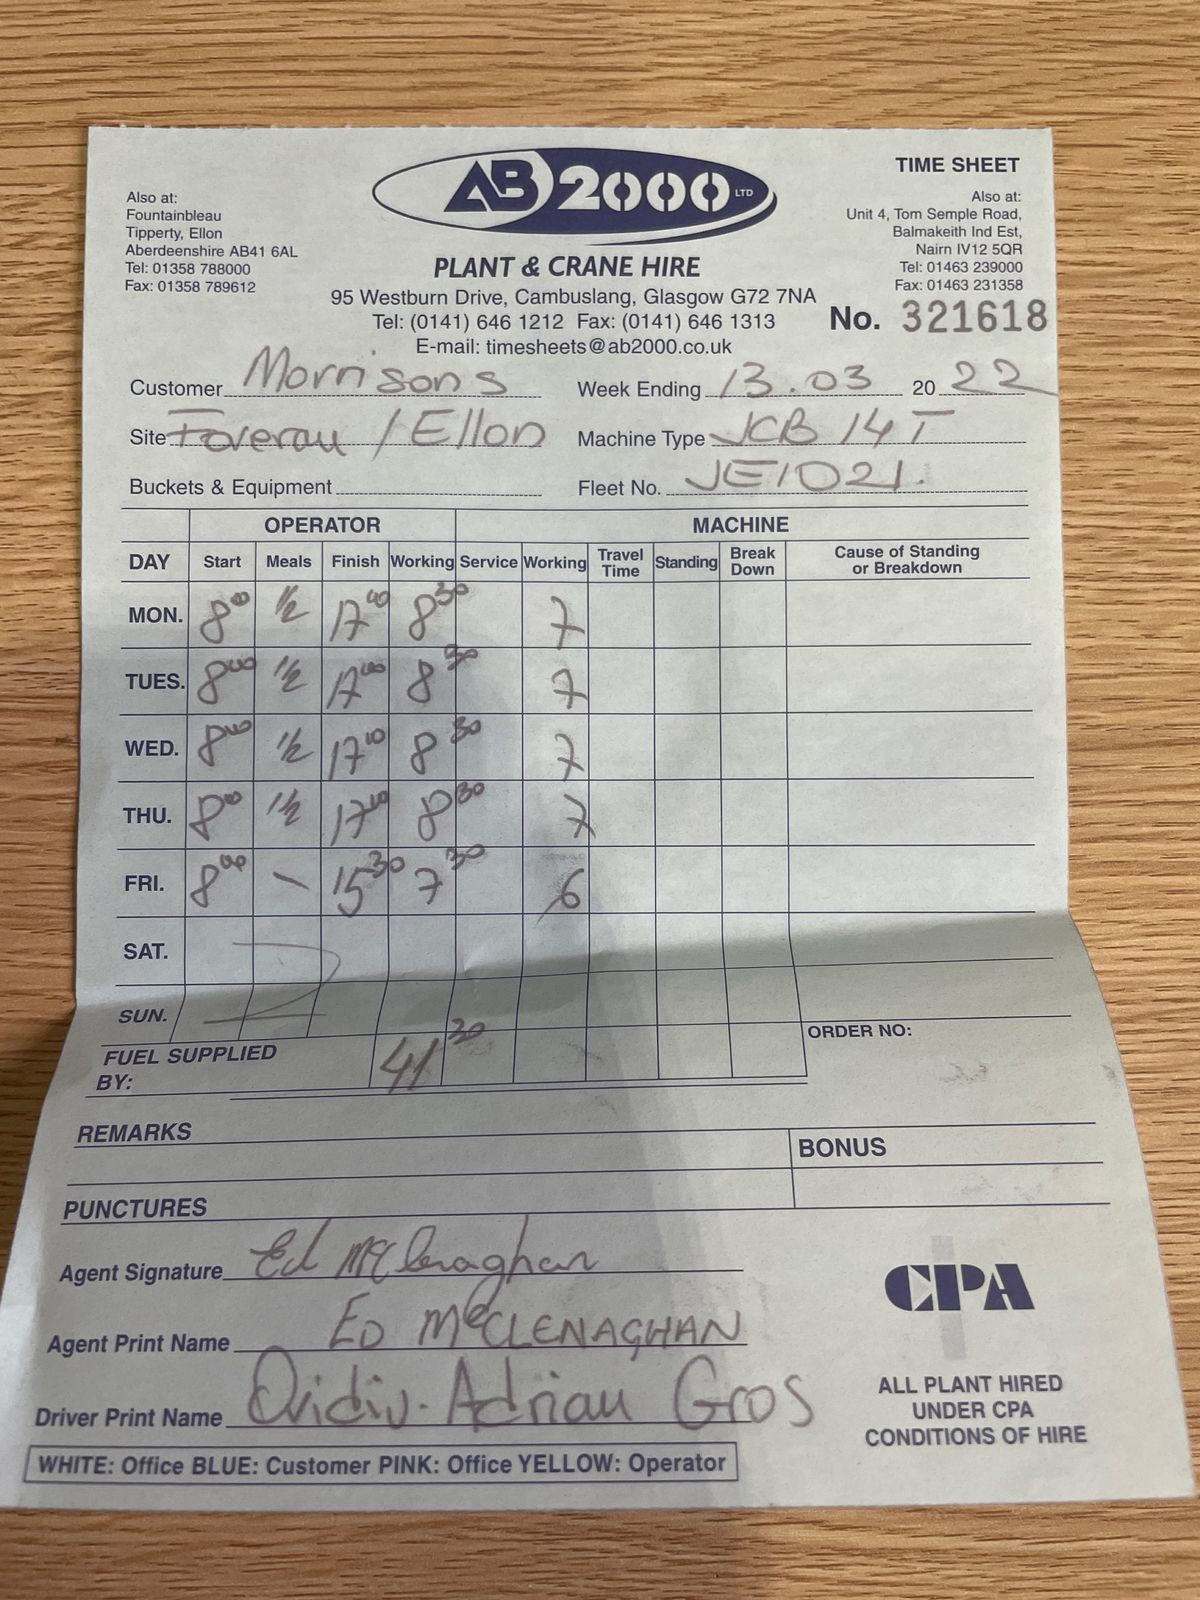 TIME SHEET
Also at:
Fountainbleau
Tipperty, Ellon
Aberdeenshire AB41 6AL
Tel: 01358 788000
Fax: 01358 789612
AB 2000 LTD
PLANT & CRANE HIRE
95 Westburn Drive, Cambuslang, Glasgow G72 7NA
Tel: (0141) 646 1212 Fax: (0141) 646 1313
E-mail: timesheets@ab2000.co.uk
Also at:
Unit 4, Tom Semple Road,
Balmakeith Ind Est,
Nairn IV12 5QR
Tel: 01463 239000
Fax: 01463 231358
No. 321618
Customer Morrisons Week Ending 13.03 2022
Site Foveran / Ellon Machine Type JCB 14T
Buckets & Equipment Fleet No. JE1021.
OPERATOR MACHINE
DAY Start Meals Finish Working Service Working Travel Time Standing Break Down Cause of Standing or Breakdown
MON. 8 00 1/2 17 00 8 30 7
TUES. 8 00 1/2 17 00 8 30 7
WED. 8 00 1/2 17 00 8 30 7
THU. 8 00 1/2 17 00 8 30 7
FRI. 8 00 - 15 30 7 30 6
SAT.
SUN.
FUEL SUPPLIED BY: 41 30 ORDER NO:
REMARKS
BONUS
PUNCTURES
Agent Signature Ed McClenaghan
Agent Print Name ED McCLENAGHAN
Driver Print Name Ovidiu-Adrian Gros
CPA
ALL PLANT HIRED
UNDER CPA
CONDITIONS OF HIRE
WHITE: Office BLUE: Customer PINK: Office YELLOW: Operator